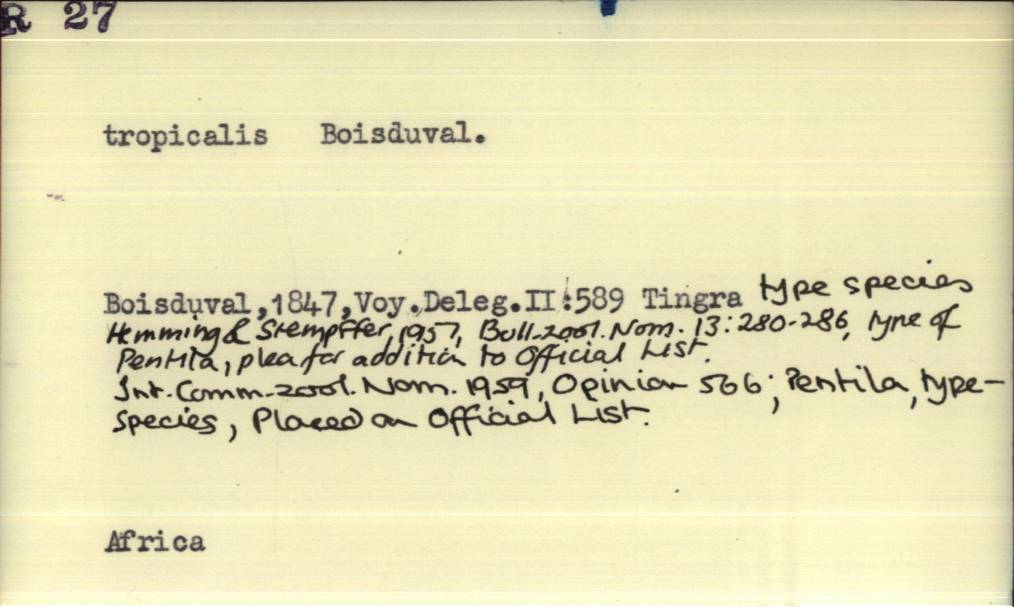 R 27
tropicalis Boisduval.
Boisduval,1847,Voy.Deleg.II:589 Tingra type species
Hemming & Stempffer, 1957, Bull. zool. Nom. 13: 280-286, type of
Pentila, plea for addition to Official List.
Int. Comm. zool. Nom. 1959, Opinion 566; Pentila, type-
species, Placed on Official List.
Africa